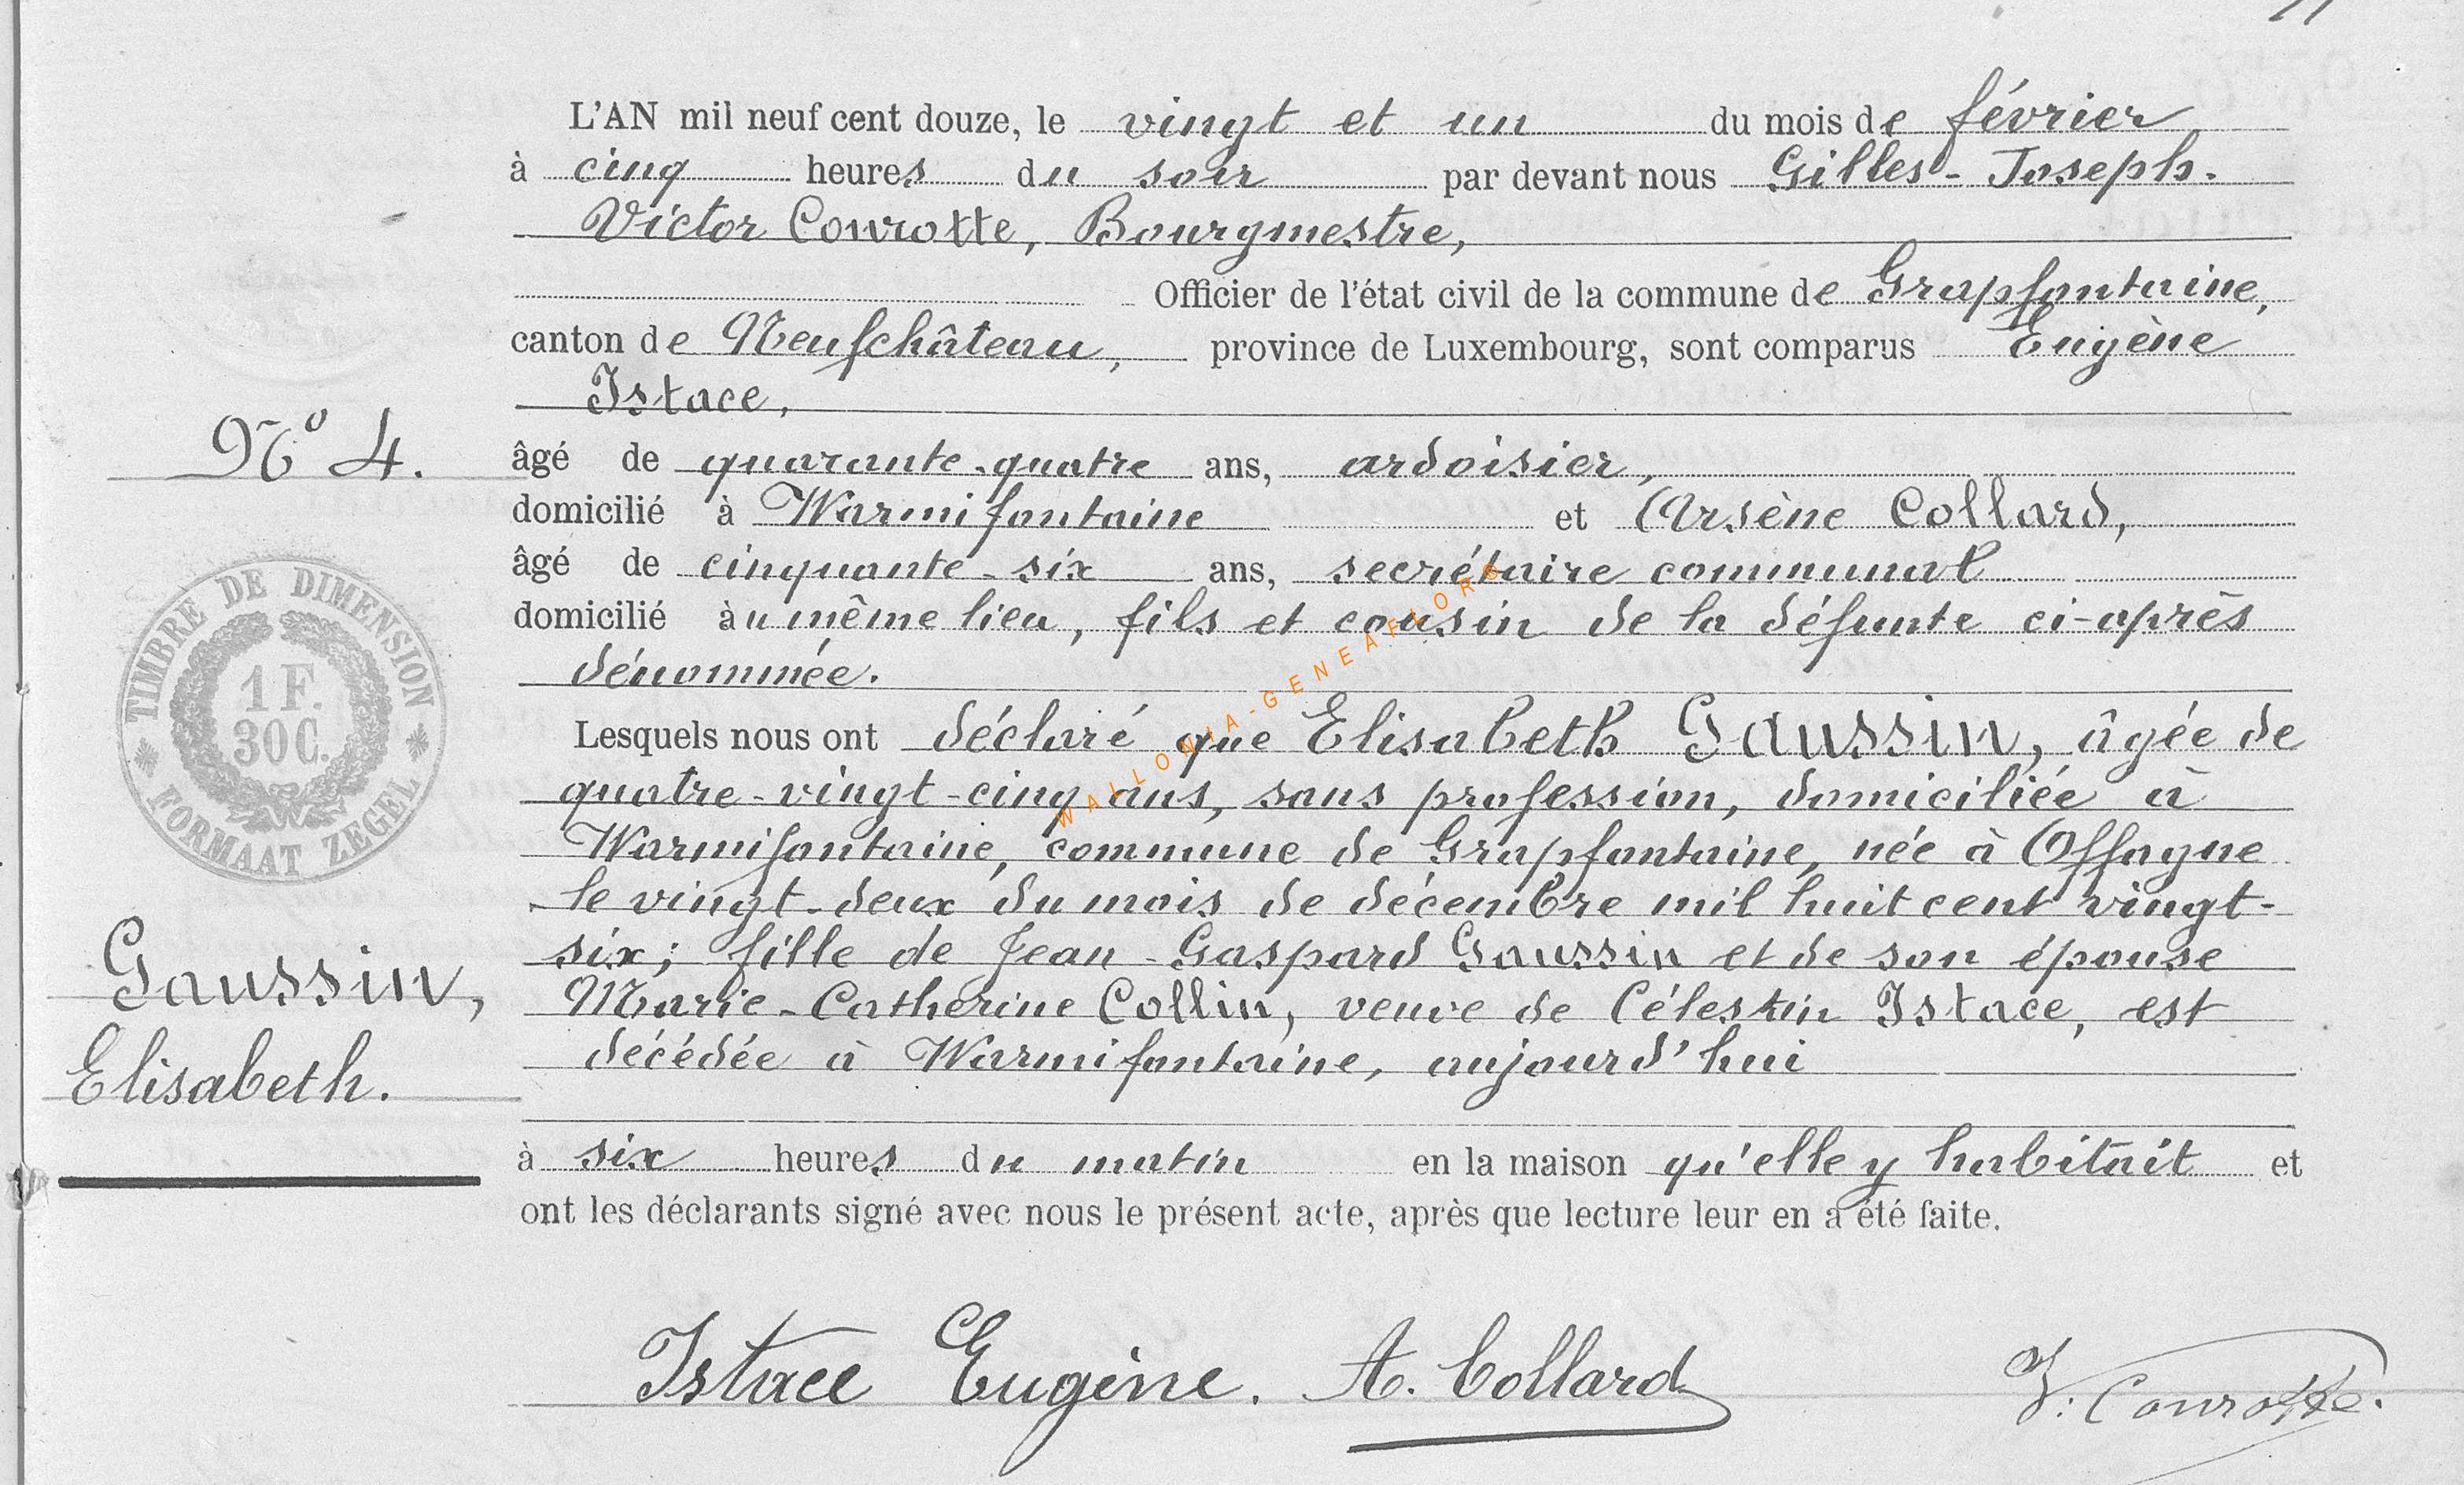 L'AN mil neuf cent douze, le vingt et un du mois de février
à cinq heures du soir par devant nous Gilles-Joseph-
Victor Courotte, Bourgmestre,
Officier de l'état civil de la commune de Grapfontaine,
canton de Neufchâteau, province de Luxembourg, sont comparus Eugène
Istace,
N° 4.
âgé de quarante-quatre ans, ardoisier,
domicilié à Warmifontaine et Arsène Collard,
âgé de cinquante-six ans, secrétaire communal
domicilié au même lieu, fils et cousin de la défunte ci-après
dénommée.
TIMBRE DE DIMENSION
1 F.
30 C.
FORMAAT ZEGEL
WALLONIA-GENEAFLORE
Lesquels nous ont déclaré que Elisabeth Gaussin, âgée de
quatre-vingt-cinq ans, sans profession, domiciliée à
Warmifontaine, commune de Grapfontaine, née à Offagne
le vingt-deux du mois de décembre mil huit cent vingt-
six; fille de Jean-Gaspard Gaussin et de son épouse
Marie-Catherine Collin, veuve de Célestin Istace, est
décédée à Warmifontaine, aujourd'hui
Gaussin,
Elisabeth.
à six heures du matin en la maison qu'elle y habitait et
ont les déclarants signé avec nous le présent acte, après que lecture leur en a été faite.
Istace Eugène. A. Collard V. Courotte.